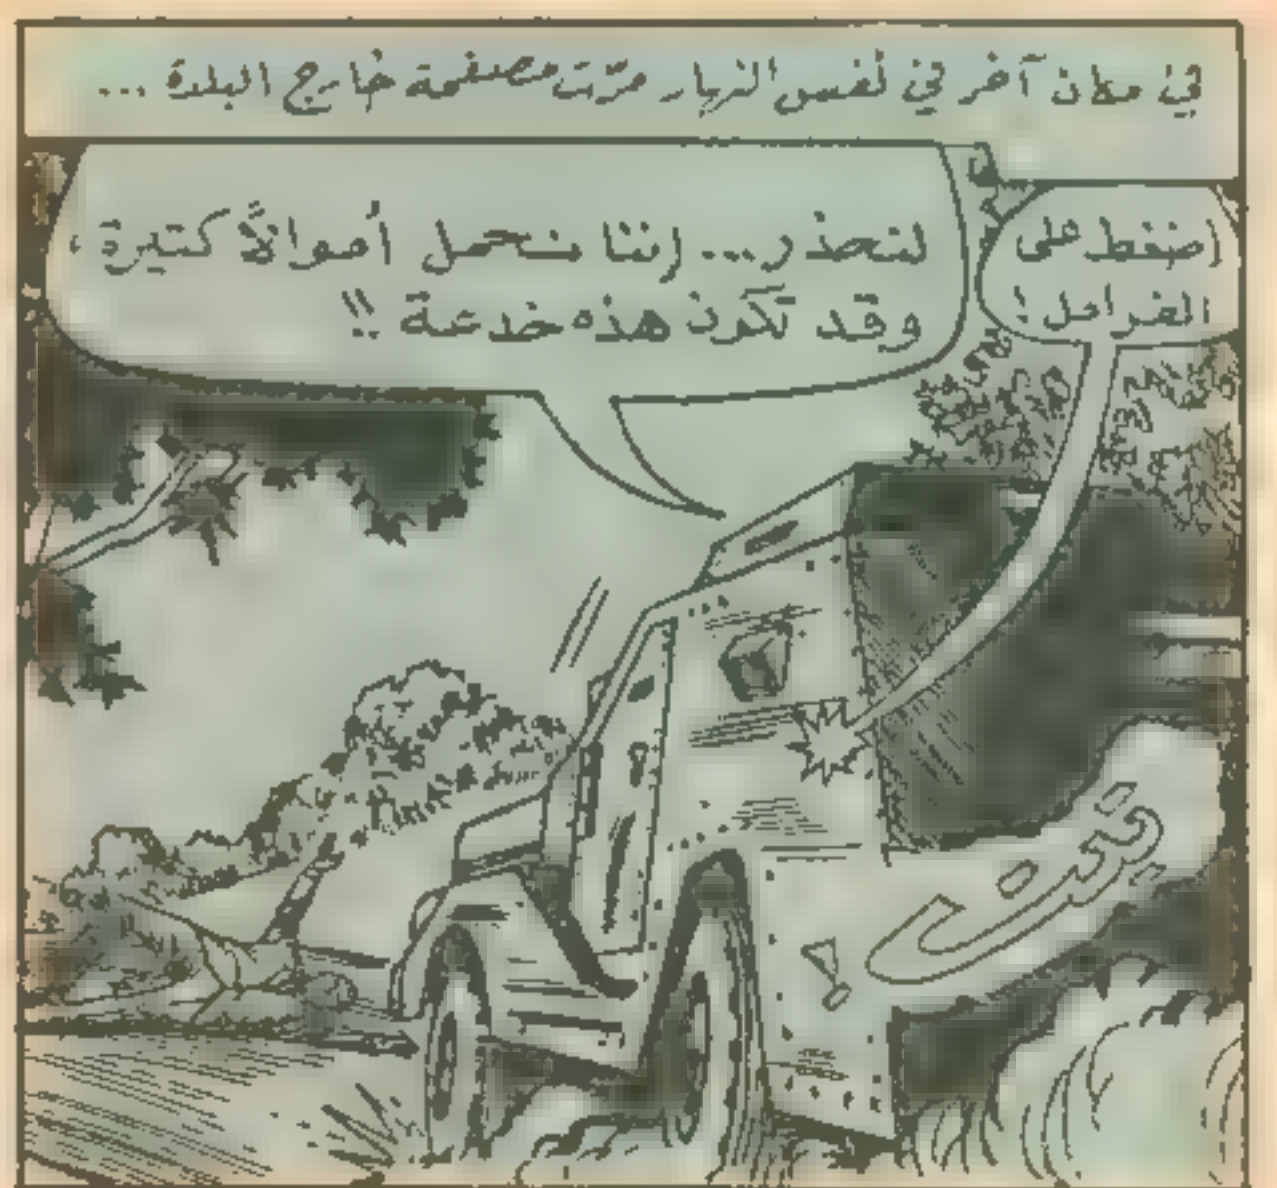 في مكان آخر في نفس النهار مرّت مصفحة خارج البلدة ...
إضغط على
الفرامل!
لنحذر... إننا نحمل أموالاً كثيرة،
وقد تكون هذه خدعة!!
!